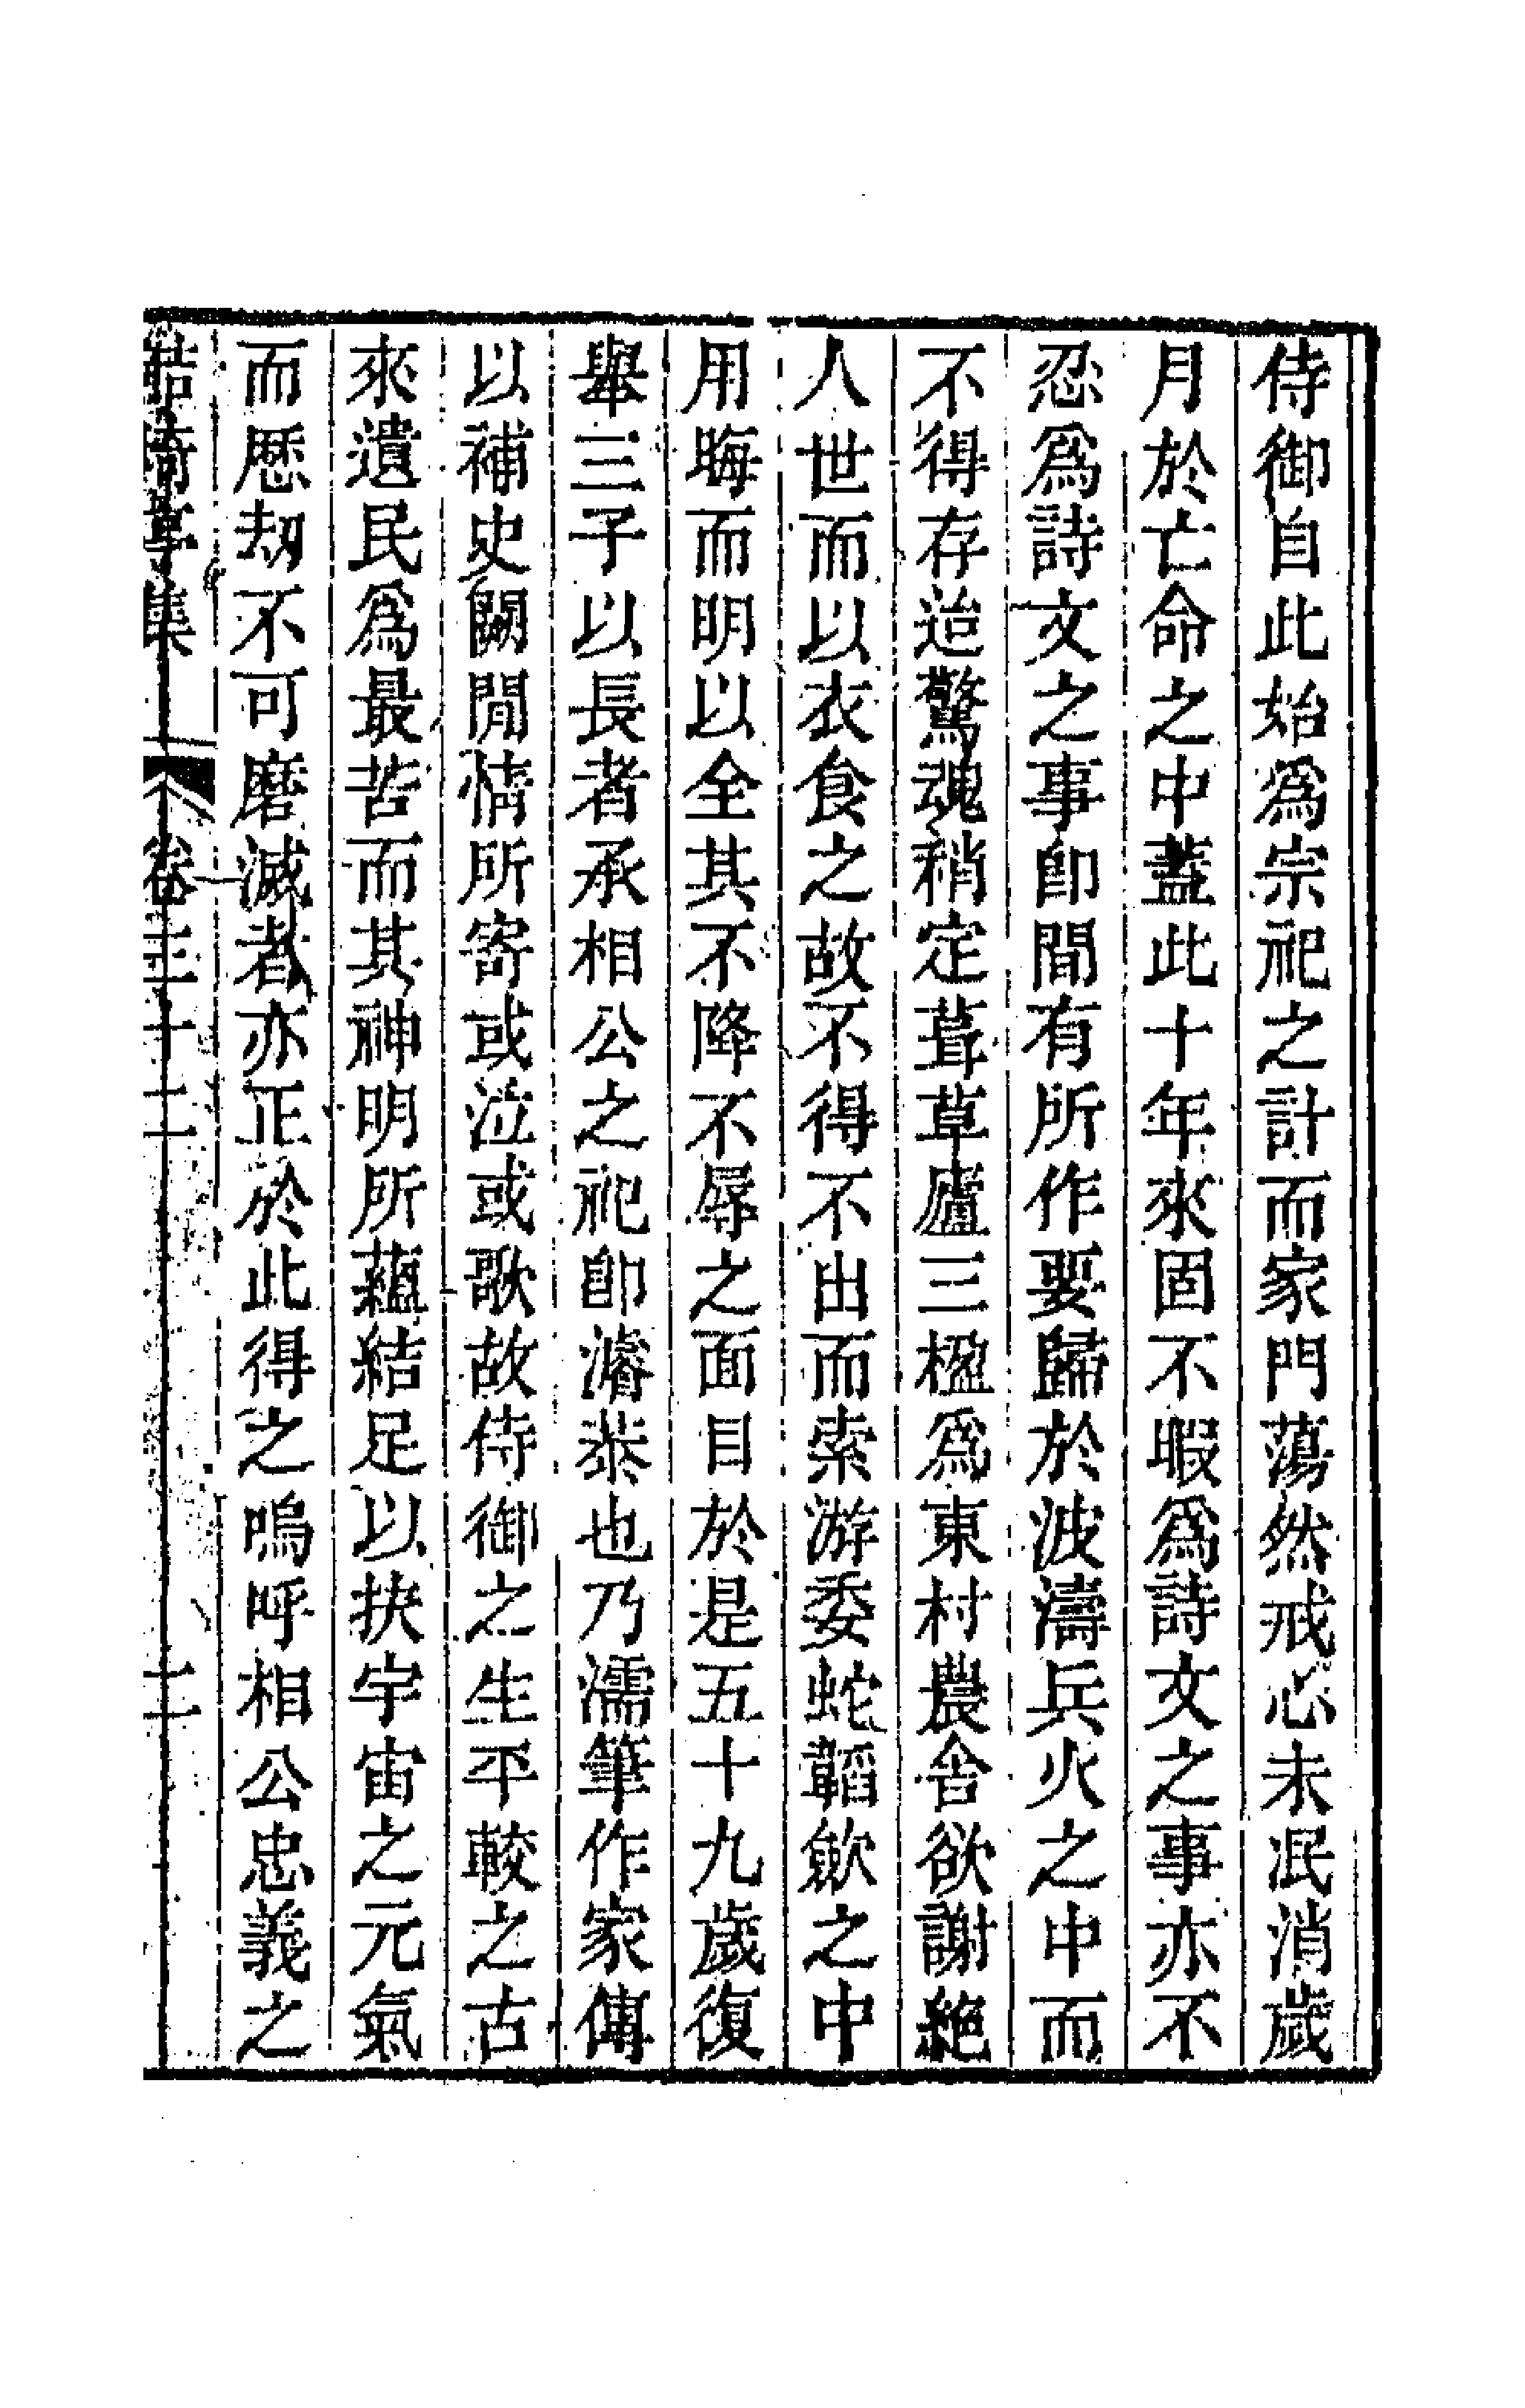 侍御自此始爲宗祀之計而家門蕩然戒心未泯消歲
月於亡命之中蓋此十年來固不暇爲詩文之事亦不
忍爲詩文之事卽間有所作要歸於波濤兵火之中而
不得存迨驚魂稍定葺草廬三楹爲東村農舍欲謝絶
人世而以衣食之故不得不出而索游委蛇韜歛之中
用晦而明以全其不降不辱之面目於是五十九歲復
舉三子以長者承相公之祀卽濬恭也乃濡筆作家傳
以補史闕閒情所寄或泣或歌故侍御之生平較之古
來遺民爲最苦而其神明所蘊結足以抉宇宙之元氣
而歷刼不可磨滅者亦正於此得之嗚呼相公忠義之
鮚埼亭集 卷三十二 二